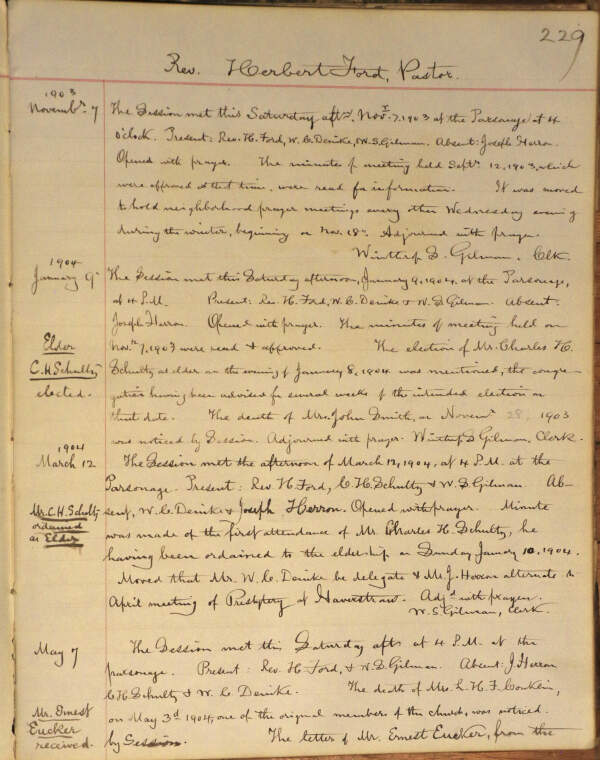 229
Rev. Herbert Ford, Pastor.
1903
Novembr. 7
The Session met this Saturday aftn. Nov. 7, 1903 at the Parsonage at 4
o'clock. Present: Rev. H. Ford, W. C. Denike, W. S. Gilman. Absent: Joseph Herron.
Opened with prayer. The minutes of meeting held Septr. 12, 1903, which
were approved at that time, were read for information. It was moved
to hold neighborhood prayer meetings every other Wednesday evening
during the winter, beginning on Nov. 18th. Adjourned with prayer.
Winthrop S. Gilman, Clk.
1904
January 9
The Session met this Saturday afternoon, January 9, 1904, at the Parsonage,
at 4 P.M. Present: Rev. H. Ford, W. C. Denike & W. S. Gilman. Absent:
Joseph Herron. Opened with prayer. The minutes of meeting held on
Nov. 7, 1903 were read & approved. The election of Mr. Charles H.
Elder
C. H. Schultz
elected.
Schultz as elder on the evening of January 8, 1904 was mentioned, the congre-
gation having been advised for several weeks of the intended election on
that date. The death of Mrs. John Smith, on Novemr. 28, 1903
was noticed by Session. Adjourned with prayer. Winthrop S. Gilman, Clerk.
1904
March 12
The Session met the afternoon of March 12, 1904, at 4 P.M. at the
Parsonage. Present: Rev. H. Ford, C. H. Schultz & W. S. Gilman. Ab-
Mr. C. H. Schultz
ordained
as Elder
sent, W. C. Denike & Joseph Herron. Opened with prayer. Minute
was made of the first attendance of Mr. Charles H. Schultz, he
having been ordained to the eldership on Sunday January 10, 1904.
Moved that Mr. W. C. Denike be delegate & Mr. J. Herron alternate to
April meeting of Presbytery at Haverstraw. Adjd. with prayer.
W. S. Gilman, Clerk.
May 7
The Session met this Saturday aftn at 4 P.M. at the
parsonage. Present: Rev. H. Ford, & W. S. Gilman. Absent: J. Herron
C. H. Schultz & W. C. Denike. The death of Mrs. L. H. F. Conklin,
Mr. Ernest
Eucker
received.
on May 3d 1904, one of the original members of this church, was noticed
by Session. The letter of Mr. Ernest Eucker, from the